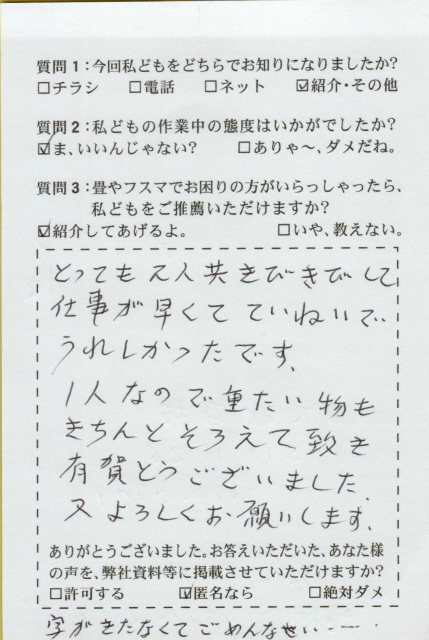 質問1:今回私どもをどちらでお知りになりましたか?
□チラシ □電話 □ネット ☑紹介・その他
質問2:私どもの作業中の態度はいかがでしたか?
☑ま、いいんじゃない? □ありゃ〜、ダメだね。
質問3:畳やフスマでお困りの方がいらっしゃったら、
私どもをご推薦いただけますか?
☑紹介してあげるよ。 □いや、教えない。
とっても2人共きびきびして
仕事が早くてていねいで
うれしかったです。
1人なので重たい物も
きちんとそろえて致き
有賀とうございました。
又よろしくお願いします。
ありがとうございました。お答えいただいた、あなた様
の声を、弊社資料等に掲載させていただけますか?
□許可する ☑匿名なら □絶対ダメ
字がきたなくてごめんなせい……